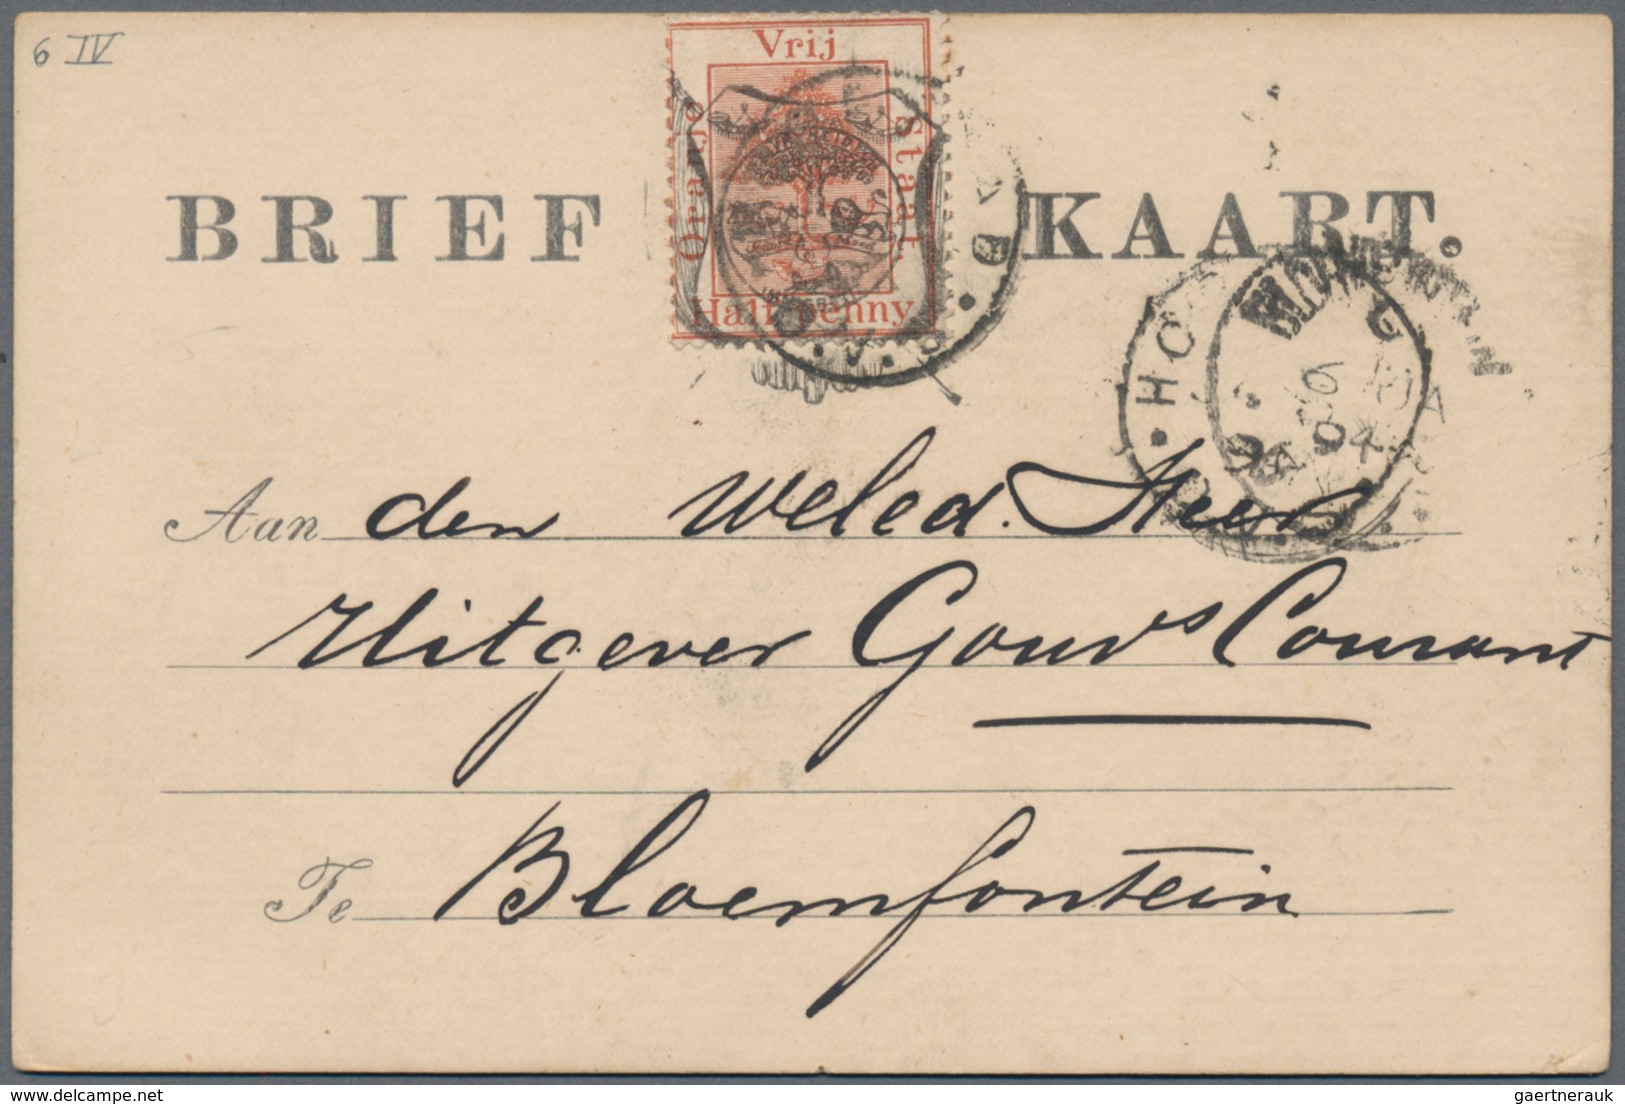 6 IV
Vrij
Oranje
Staat.
Half penny
BRIEF KAART.
Aan den Weled. Heer
Uitgever Gouvs Courant
Te Bloemfontein
gaertnerauk